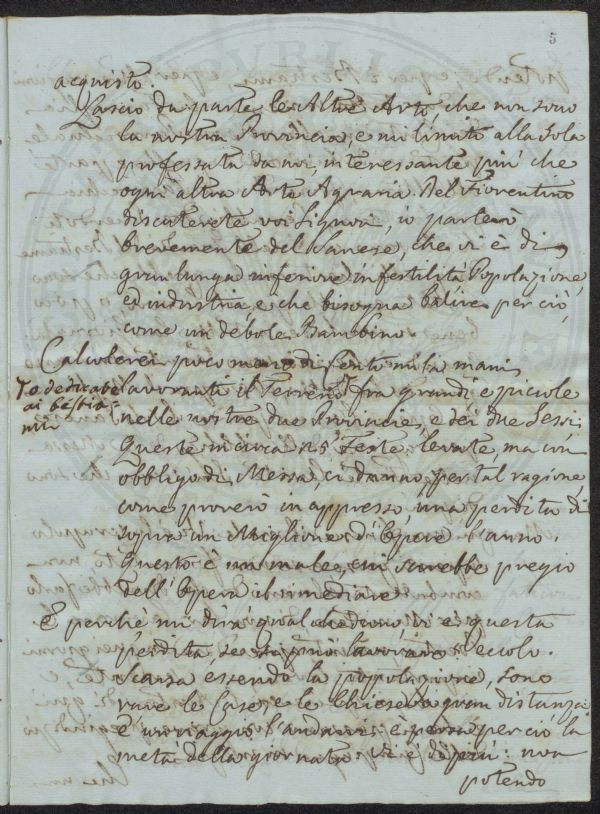 5
acquisto.
Lascio da parte le Altre Arti, che non sono
la nostra Provincia, e mi limito alla sola
professata da noi, interessante più che
ogni altra Arte Agraria. Del Fiorentino
discuterete voi Signori, io parlerò
brevemente del Sanese, che vi è di
gran lunga inferiore in fertilità Popolazione,
ed industria, e che bisogna balire per ciò,
come un debole Bambino.
Calcolerei poco meno di cento mila mani
lavoranti il Terreno, fra grandi e piccole
o dedicate
ai bestia-
mi
nelle nostre due Provincie, e dei due Sessi.
Queste in circa 25 Feste levate, ma con
obbligo di Messa, ci danno per tal ragione,
come proverò in appresso, una perdita di
sopra un Miglione d'Opere l'anno.
Questo è un male, cui sarebbe pregio
dell'Opera il rimediare.
E perchè mi dirà qualcheduno vi è questa
perdita, se si può lavorare? Eccolo.
Scarsa essendo la popolazione, sono
rare le Case, e le Chiese a gran distanza
è un viaggio l'andarvi: è persa perciò la
metà della giornata. Vi è di più: non
potendo